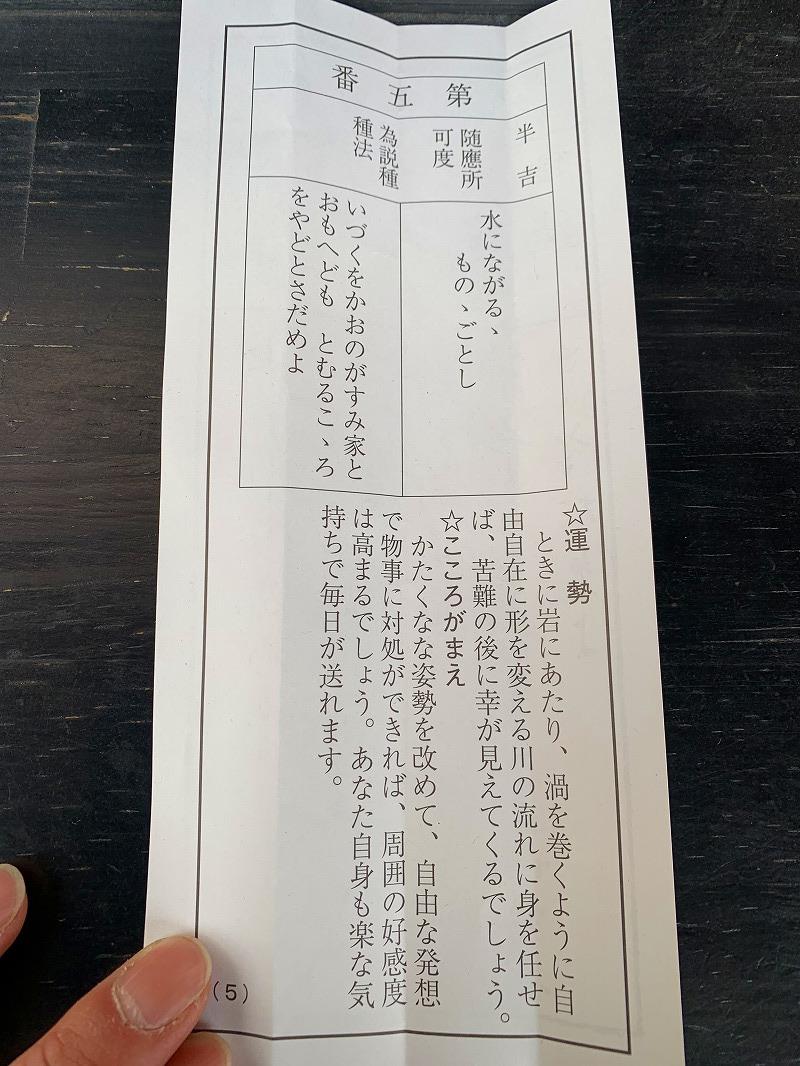 第五番
半吉
随應所
可度
為説種
種法
水にながるゝ
ものゝごとし
いづくをかおのがすみ家と
おもへども　とむるこゝろ
をやどとさだめよ
☆運　勢
ときに岩にあたり、渦を巻くように自
由自在に形を変える川の流れに身を任せ
ば、苦難の後に幸が見えてくるでしょう。
☆こころがまえ
かたくなな姿勢を改めて、自由な発想
で物事に対処ができれば、周囲の好感度
は高まるでしょう。あなた自身も楽な気
持ちで毎日が送れます。
(5)